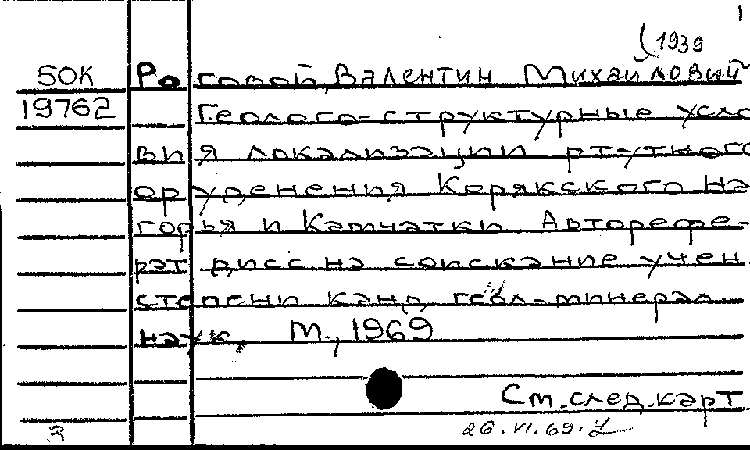 1
(1939
50К Роговой, Валентин Михайлович
19762 Геолого-структурные усло
вия локализации ртутного
оруденения Корякского на
горья и Камчатки Авторефе-
рат дисс на соискание учен.
степени канд геол-минерал.
наук. М., 1969
См. след. карт
26.VI.69.